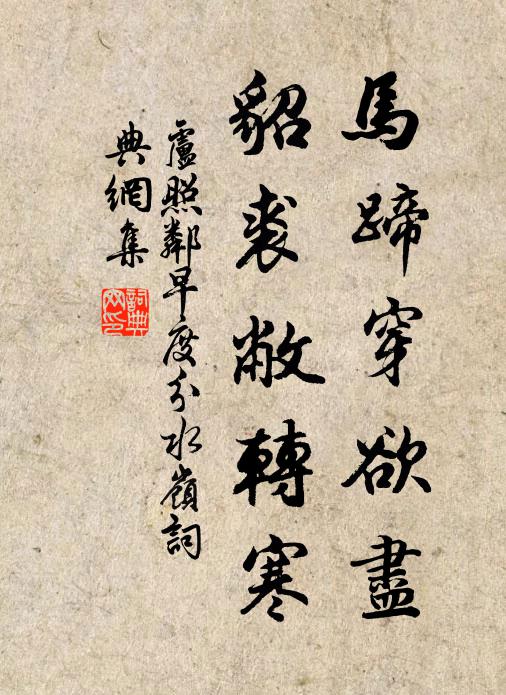 馬蹄穿欲盡
貂裘敝轉寒
盧照鄰早度分水嶺詞
典網集
詞典
网印